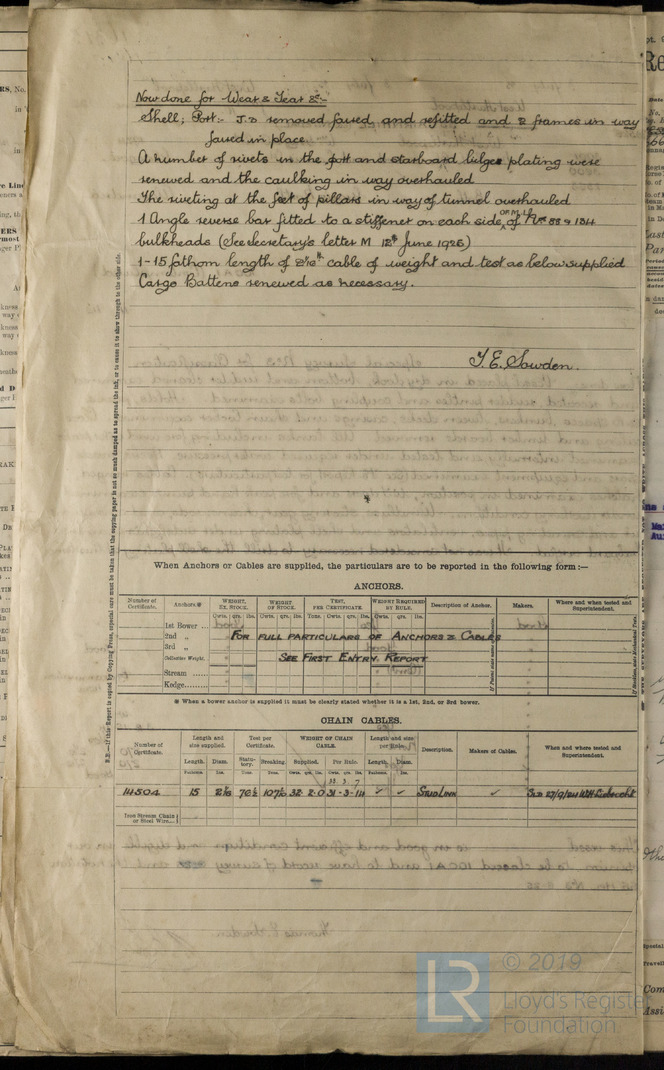 Now done for Wear & Tear &c:-
Shell; Port:- J.3 removed faired and refitted and 2 frames in way
faired in place.
A number of rivets in the port and starboard bilge plating were
renewed and the caulking in way overhauled
The riveting at the feet of pillars in way of tunnel overhauled
1 Angle reverse bar fitted to a stiffener on each side of the Nos 88 & 134
bulkheads (See Secretary's letter M 12th June 1926)
1-15 fathom length of 2 1/16" cable of weight and test as below supplied
Cargo Battens renewed as necessary.
T. E. Sowden.
When Anchors or Cables are supplied, the particulars are to be reported in the following form:—
ANCHORS.
Number of Certificate. Anchors.* WEIGHT, EX. STOCK. WEIGHT OF STOCK. TEST, PER CERTIFICATE. WEIGHT REQUIRED BY RULE. Description of Anchor. Makers. Where and when tested and Superintendent.
Cwts. qrs. lbs. Cwts. qrs. lbs. Tons. Cwts. qrs. lbs. Cwts. qrs. lbs.
1st Bower ...
2nd „ FOR FULL PARTICULARS OF ANCHORS & CABLES
3rd „
(Collective Weight. SEE FIRST ENTRY REPORT
Stream ......
Kedge.........
* When a bower anchor is supplied it must be clearly stated whether it is a 1st, 2nd, or 3rd bower.
CHAIN CABLES.
Number of Certificate. Length and size supplied. Test per Certificate. WEIGHT OF CHAIN CABLE. Length and size per Rule. Description. Makers of Cables. When and where tested and Superintendent.
Length. Diam. Statutory. Breaking. Supplied. Per Rule. Length. Diam.
Fathoms Ins. Tons. Tons. Cwts. qrs. lbs. Cwts. qrs. lbs. Fathoms. Ins.
14504 15 2 1/16 76½ 107 32-2-0 31-3-14 ✓ ✓ STUD LINK ✓
Iron Stream Chain or Steel Wire...
N.B.—If this Report is copied by Copying Press, especial care must be taken that the copying paper is not so much damped as to spread the ink, or to cause it to show through to the other side.
© 2019
LR
Lloyd's Register
Foundation